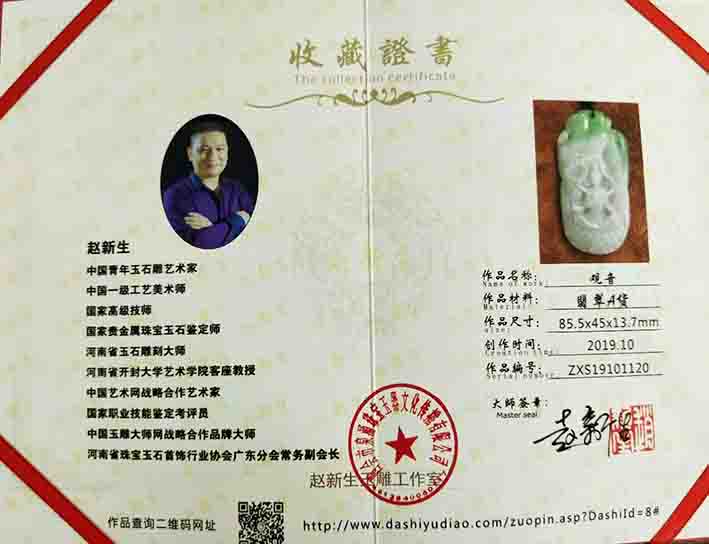 收藏證書
The collection certificate
赵新生
中国青年玉石雕艺术家
中国一级工艺美术师
国家高级技师
国家贵金属珠宝玉石鉴定师
河南省玉石雕刻大师
河南省开封大学艺术学院客座教授
中国艺术网战略合作艺术家
国家职业技能鉴定考评员
中国玉雕大师网战略合作品牌大师
河南省珠宝玉石首饰行业协会广东分会常务副会长
作品名称: 观音
Name of work
作品材料: 翡翠A货
Material
作品尺寸: 85.5x45x13.7mm
size
创作时间: 2019.10
Creation time
作品编号: ZXS19101120
Serial number
大师签章:
Master seal
赵新生
珠宝玉器文化传播有限公司
赵新生玉雕工作室
作品查询二维码网址
http://www.dashiyudiao.com/zuopin.asp?DashiId=8#